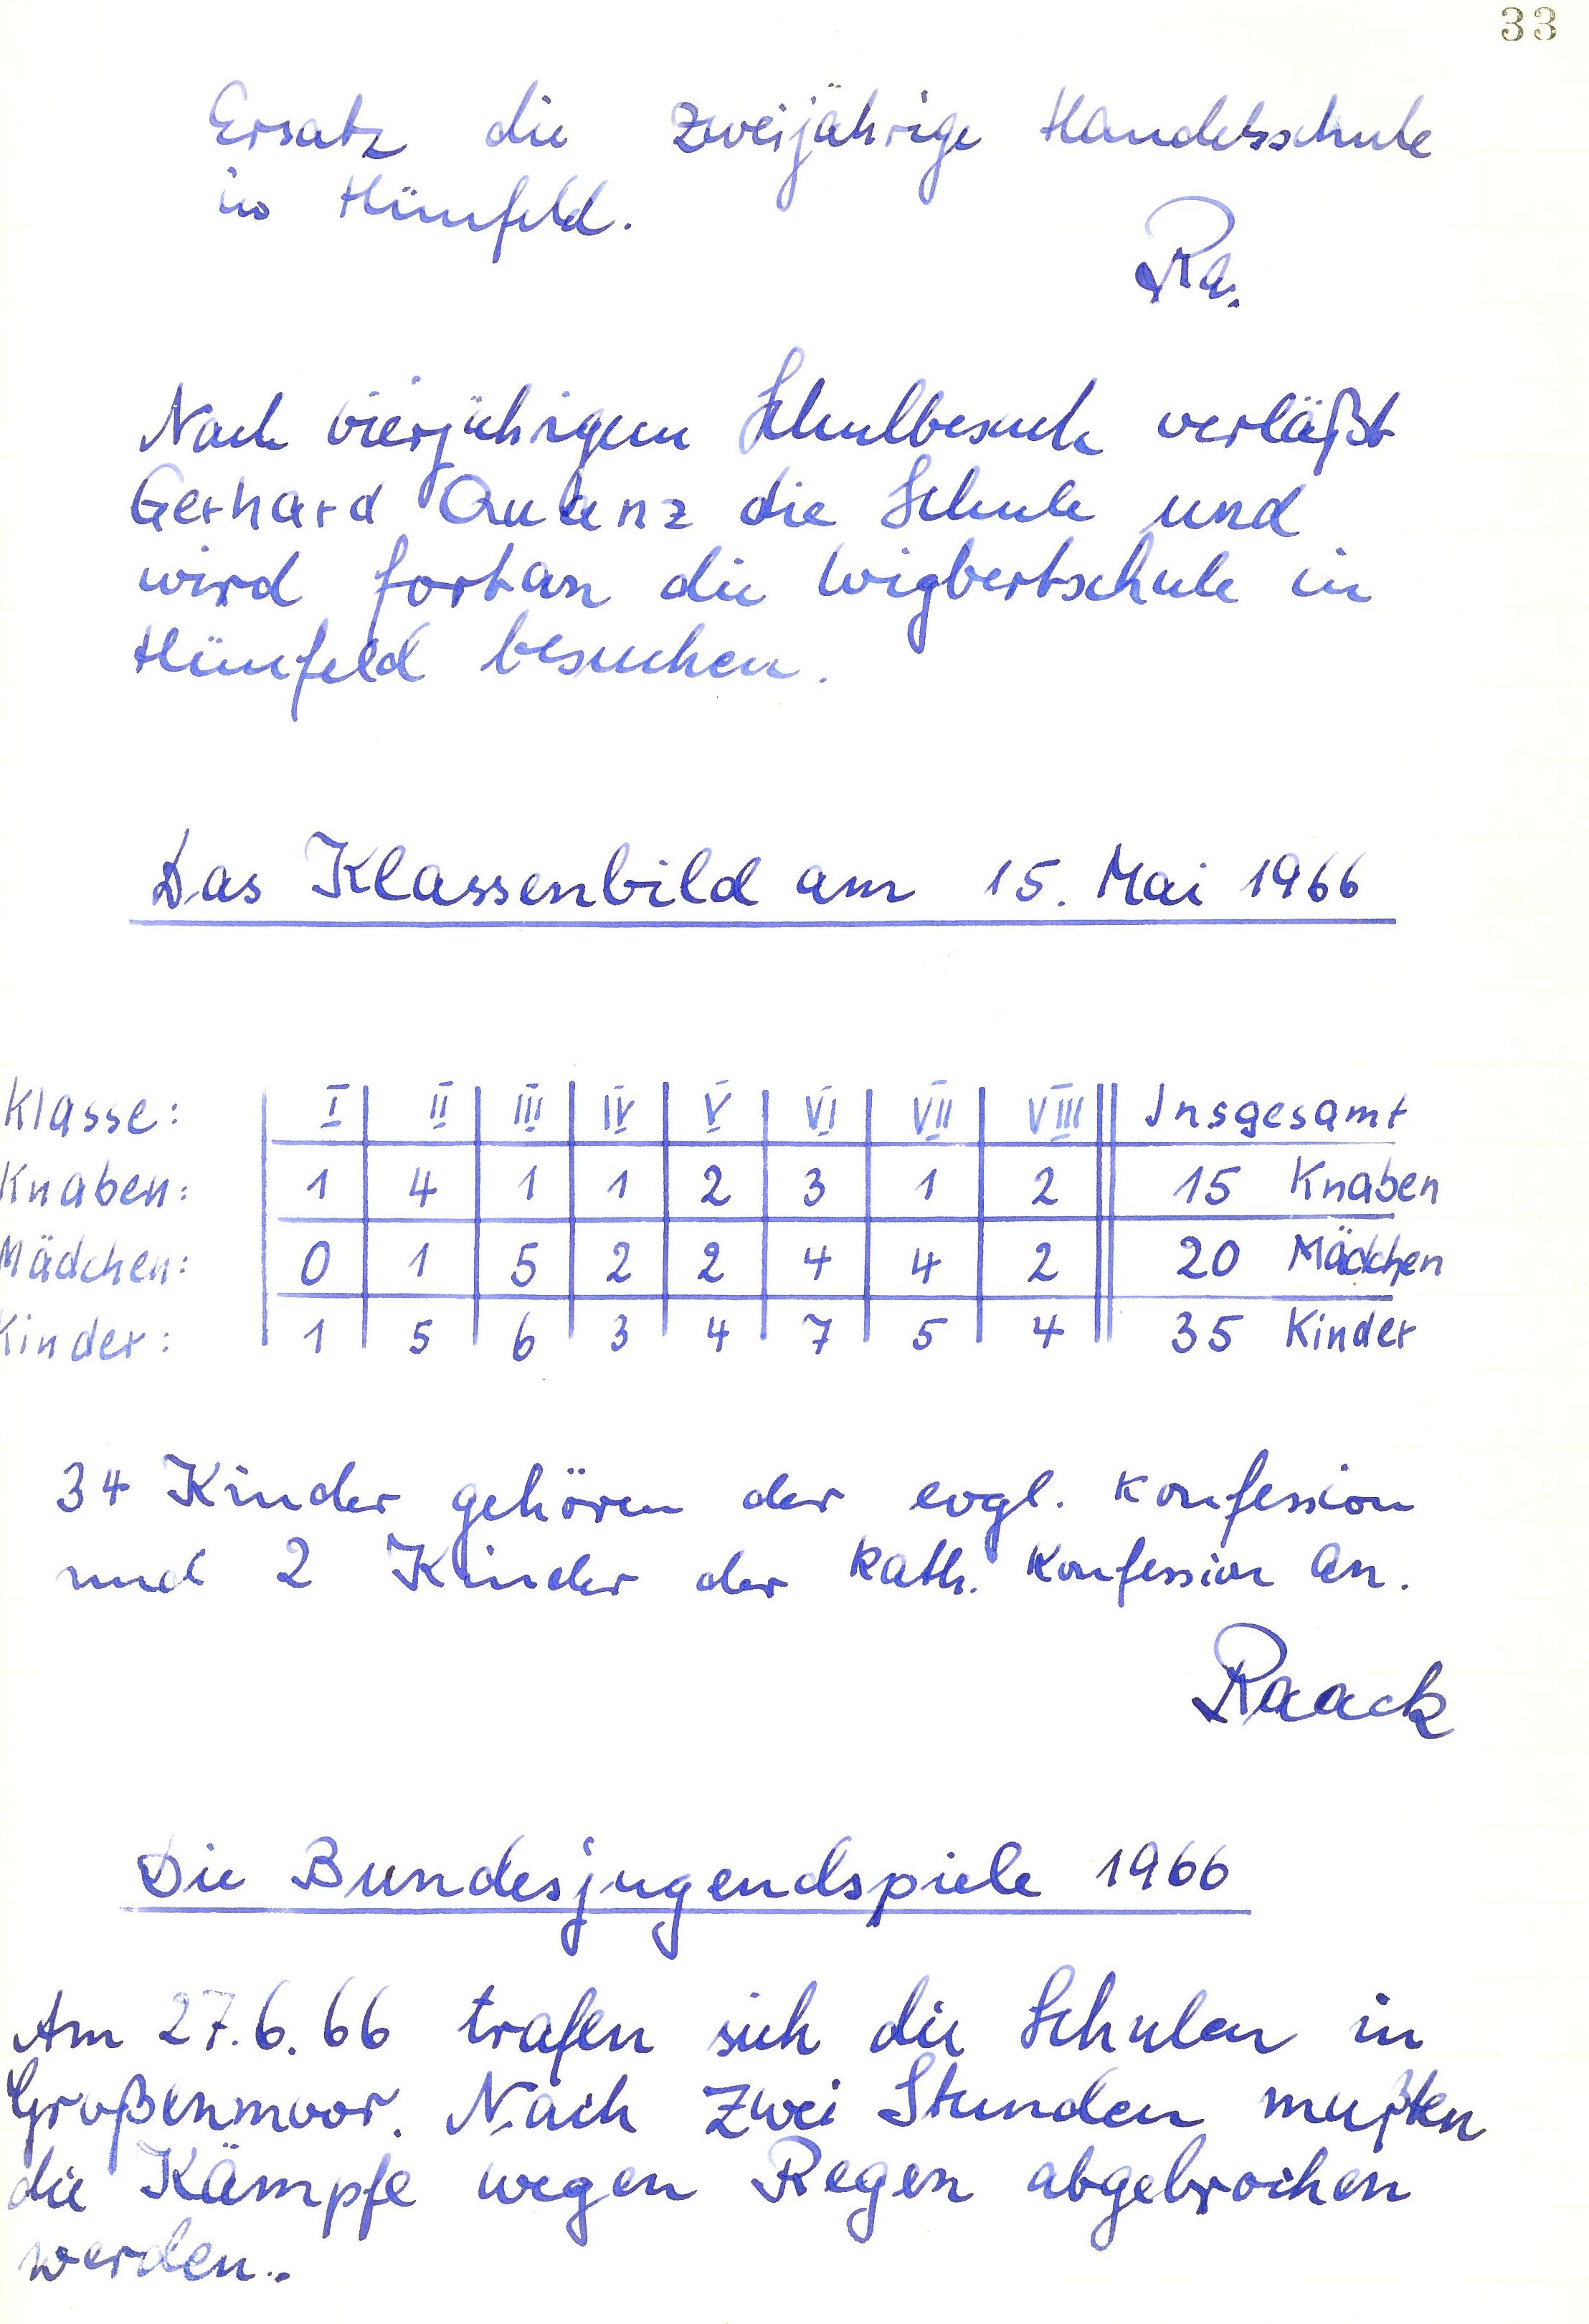 33
Ersatz die zweijährige Handelsschule
in Hünfeld.
Ra.
Nach vierjährigem Schulbesuch verläßt
Gerhard Quanz die Schule und
wird fortan die Wigbertschule in
Hünfeld besuchen.
Das Klassenbild am 15. Mai 1966
Klasse: I II III IV V VI VII VIII Insgesamt
Knaben: 1 4 1 1 2 3 1 2 15 Knaben
Mädchen: 0 1 5 2 2 4 4 2 20 Mädchen
Kinder: 1 5 6 3 4 7 5 4 35 Kinder
34 Kinder gehören der evgl. Konfession
und 2 Kinder der kath. Konfession an.
Raack
Die Bundesjugendspiele 1966
Am 27.6.66 trafen sich die Schulen in
Großenmoor. Nach zwei Stunden mußten
die Kämpfe wegen Regen abgebrochen
werden..